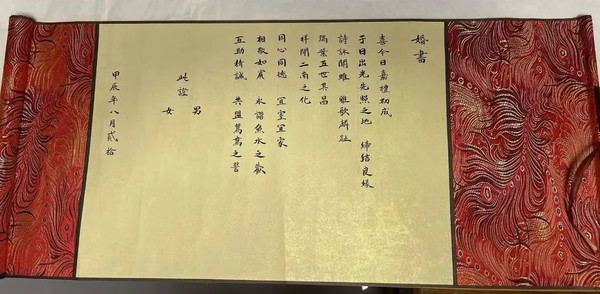 婚書
喜今日嘉禮初成
于日出光先照之地 締結良緣
詩詠關雎 雅歌麟趾
瑞葉五世其昌
祥開二南之化
同心同德 宜室宜家
相敬如賓 永諧魚水之歡
互助精誠 共盟鴛鴦之誓
此證
男
女
甲辰年八月貳拾